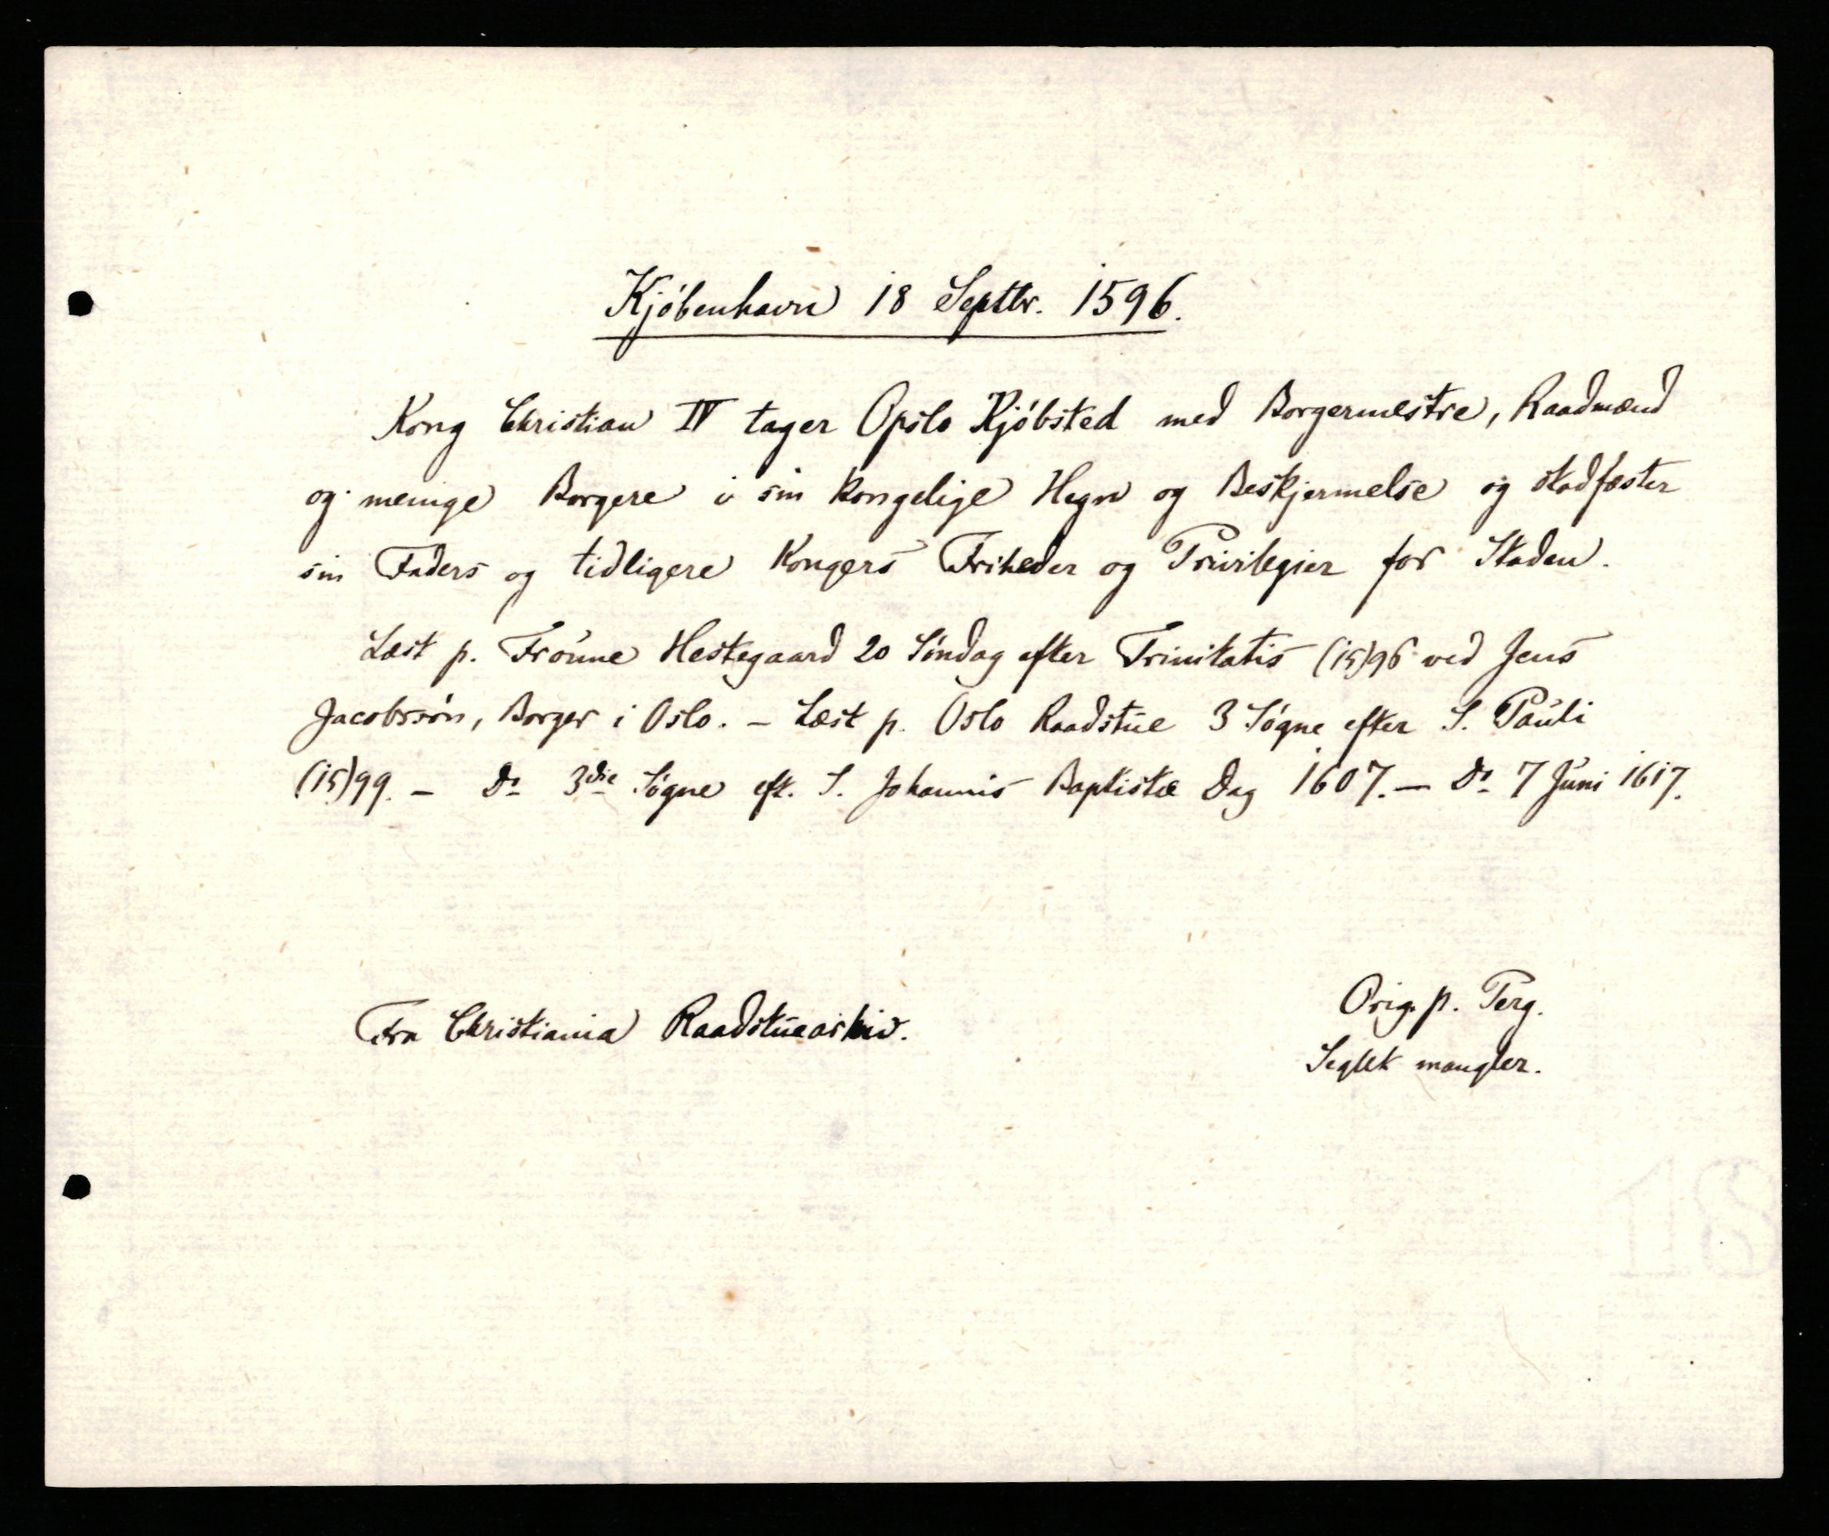 Kjöbenhavn 18 Septbr. 1596.
Kong Christian IV tager Opslo Kjöbsted med Borgermestre, Raadmænd
og menige Borgere i sin kongelige Hegn og Beskjermelse og stadfæster
sin Faders og tidligere Kongers Friheder og Privilegier for Staden.
Læst p. Fronne Hestegaard 20 Söndag efter Trinitatis (15)96 ved Jens
Jacobssön, Borger i Oslo. – Læst p. Oslo Raadstue 3 Sögne efter S. Pauli
(15)99. – Do 3die Sögne eft. S. Johannis Baptistæ Dag 1607. – Do 7 Juni 1617.
Fra Christiania Raadstuearkiv.
Orig. p. Perg.
Seglet mangler.